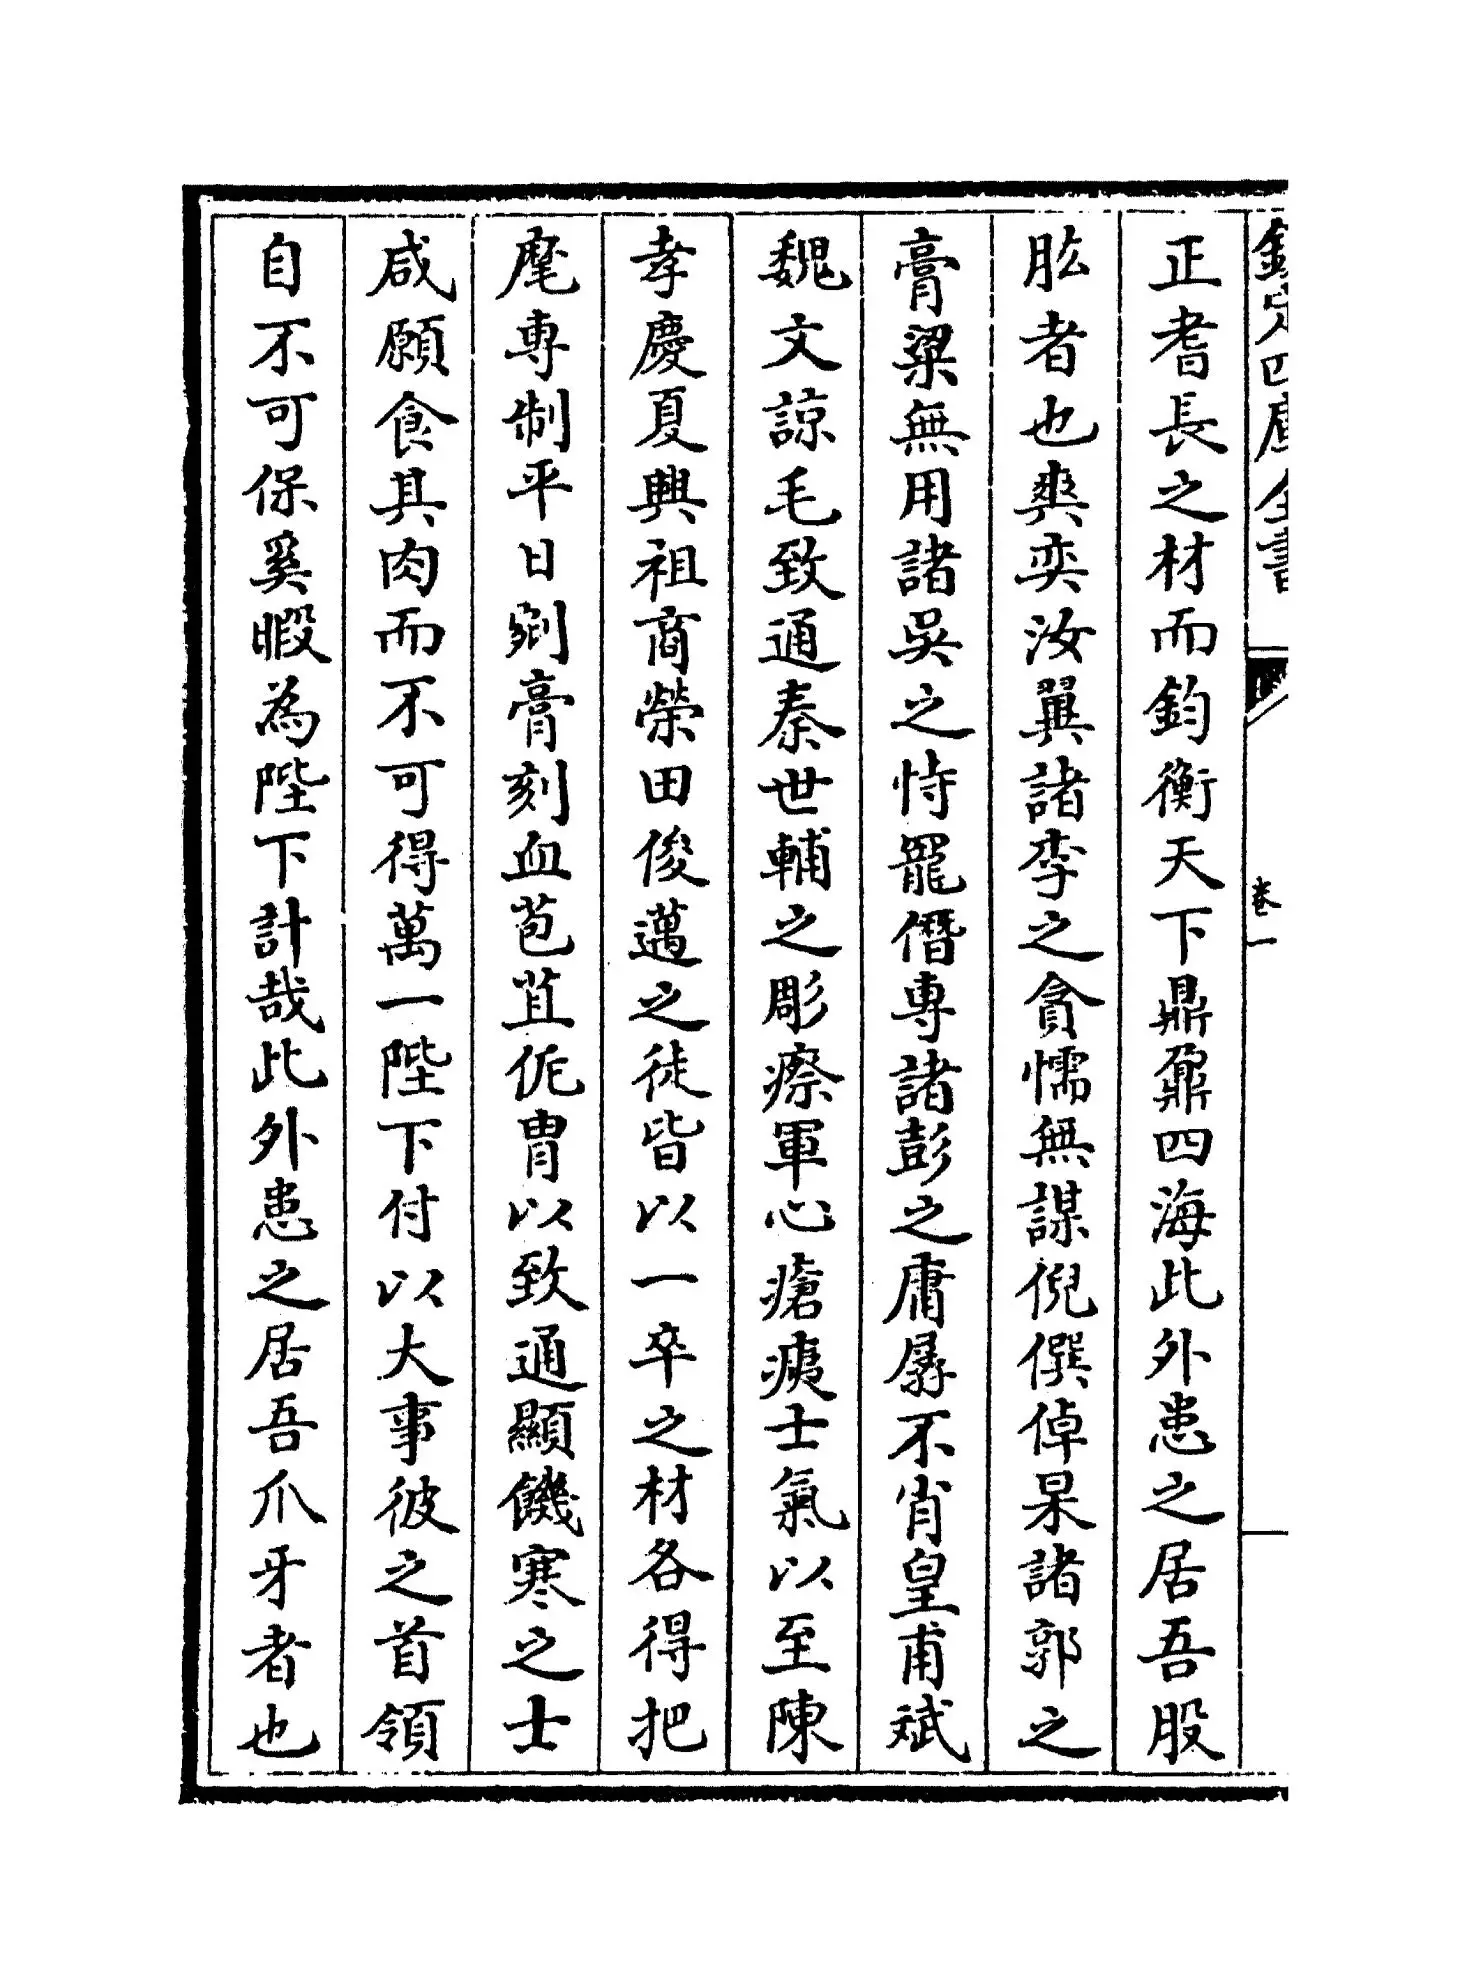 欽定四庫全書
卷一
正耆長之材而鈞衡天下鼎鼐四海此外患之居吾股
肱者也奭奕汝翼諸李之貪懦無謀倪僎倬杲諸郭之
膏粱無用諸吳之恃寵僭專諸彭之庸孱不肖皇甫斌
魏文諒毛致通秦世輔之彫瘵軍心瘡痍士氣以至陳
孝慶夏興祖商榮田俊邁之徒皆以一卒之材各得把
麾專制平日剜膏刻血苞苴侂胄以致通顯饑寒之士
咸願食其肉而不可得萬一陛下付以大事彼之首領
自不可保奚暇為陛下計哉此外患之居吾爪牙者也